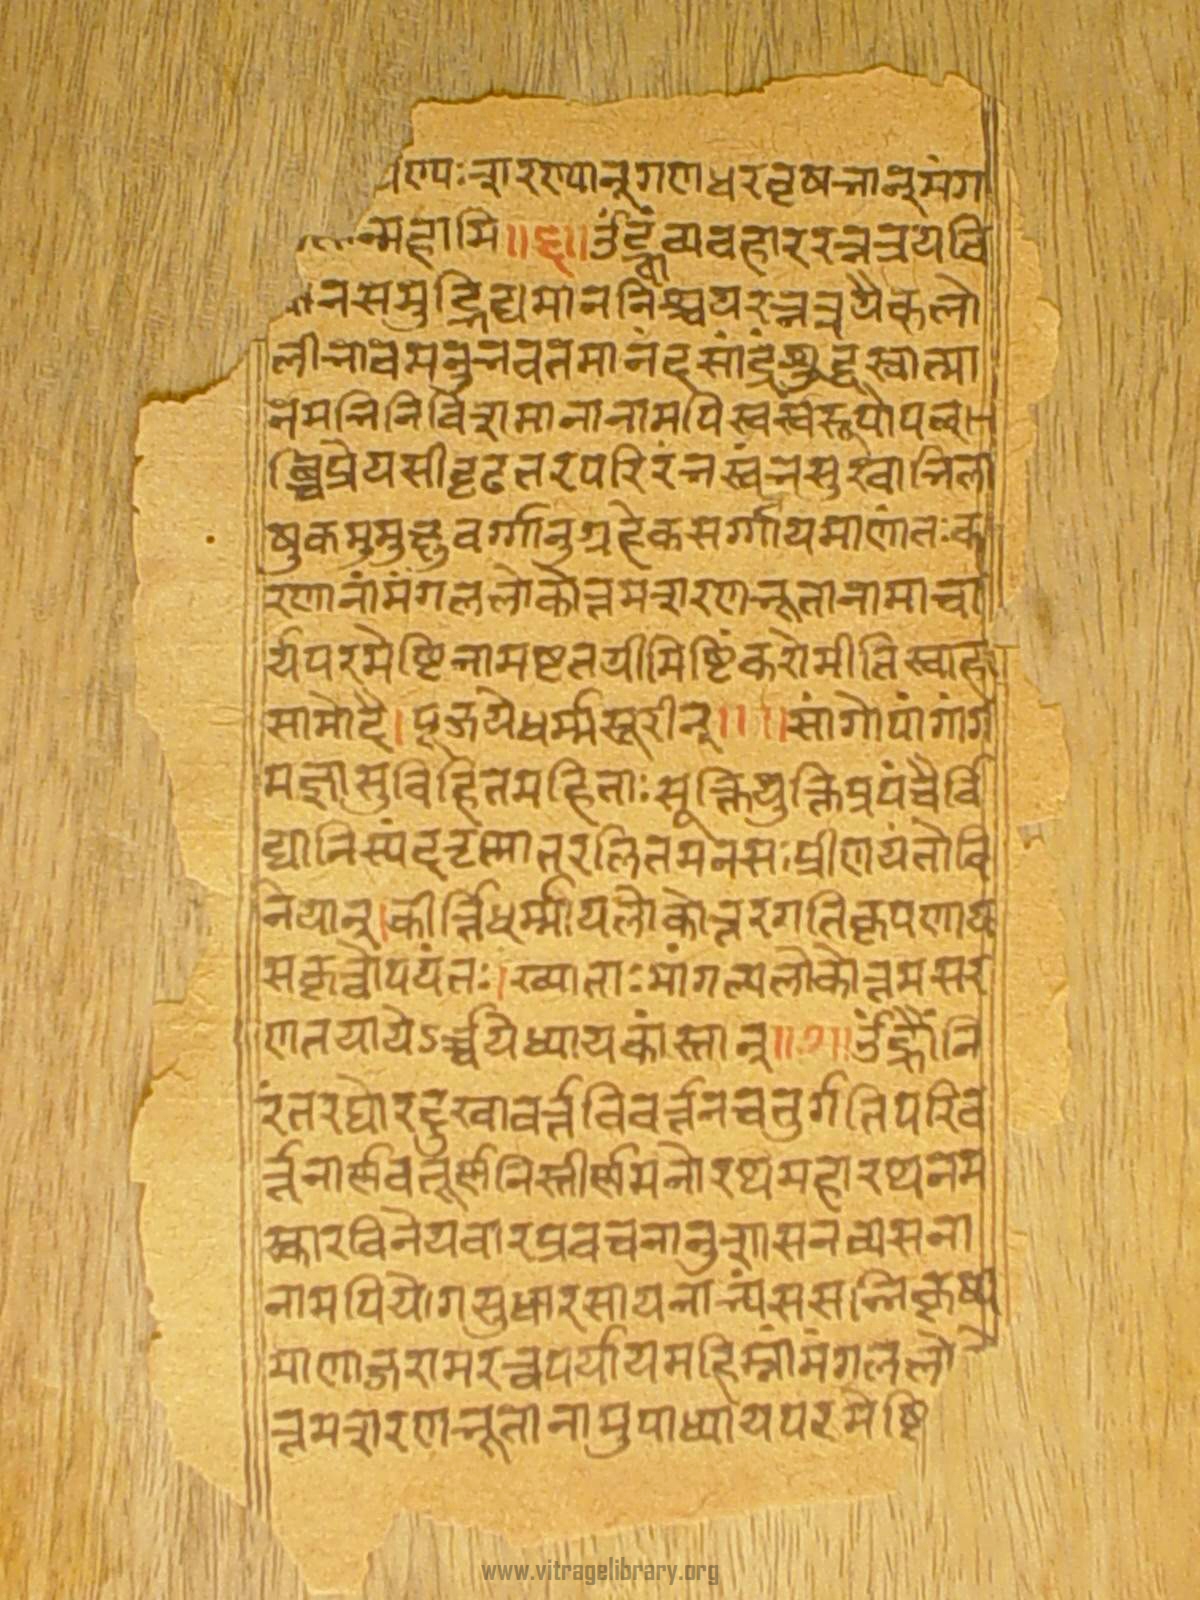 र्णपः शरण्यान् गणधरवृषभानुमंग
न्महामि ॥६॥ उँह्रूं व्यवहाररत्नत्रयवि
नसमुद्भिद्यमाननिश्चयरत्नत्रयैकलो
लीभावमनुभवतमानंदसांद्रं शुद्धस्वात्मा
नमभिनिर्विशमानानामपि स्वस्वरूपोपल
ब्धिप्रेयसीदृढतरपरिरंभस्वंनसुखाभिला
षुकमुमुक्षुवर्गानुग्रहैकसर्गायमाणांतःक
रणानांमंगललोकोत्तमशरणभूतानामाचा
र्यपरमेष्टिनामष्टतयीमिष्टिंकरोमीतिस्वाहा
सामोदै। पूजयेधर्म्मसूरीन्॥ ॥सांगोपांगांग
मज्ञासुविहितमहिताःसूक्तियुक्तिप्रपंचैर्वि
द्यानिस्पंदतृष्णातरलितमनसःप्रीणयंतोवि
नेयान्।कीर्त्तिधर्म्मायलोकोत्तरगतिकृपणाय
सकृच्चोपयंतः।ख्याताःमांगल्यलोकोत्तमसर
णतयायेऽर्च्चयेध्यायकांस्तान्॥७॥ उँह्रौं नि
रंतरघोरदुखावर्त्तविवर्त्तनचतुर्गतिपरिव
र्त्तनार्णवतूर्णनिस्तीर्णमनोरथमहारथनम
स्कारविनेयवारप्रवचनानुशासनव्यसना
नामपियोगसुधारसायनाभ्यससन्निकृष्य
माणाजरामरत्वपर्यायमहिम्नांमंगललो
त्तमशरणभूतानामुपाध्यायपरमेष्टि
www.vitragelibrary.org